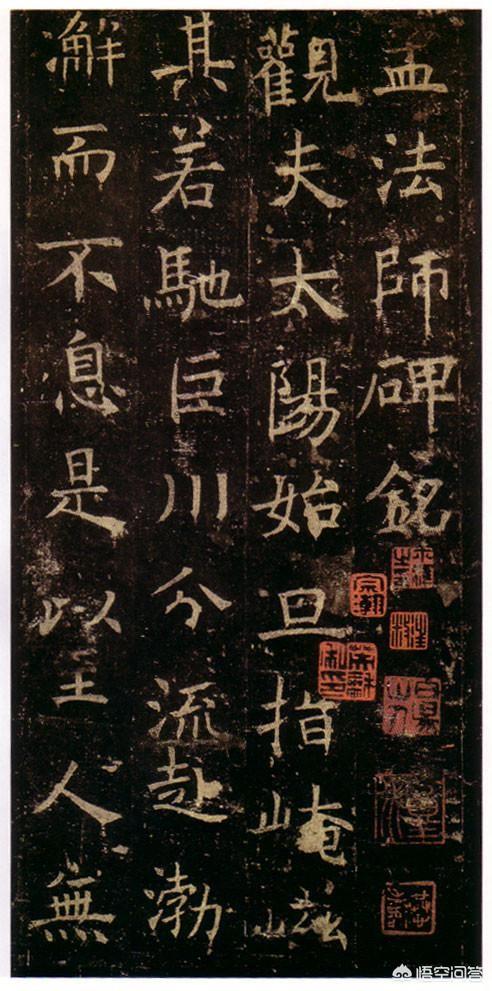 孟法師碑銘
觀夫太陽始旦指崦嵫
其若馳巨川分流赴渤
澥而不息是以至人無
宗瀚
悟空问答